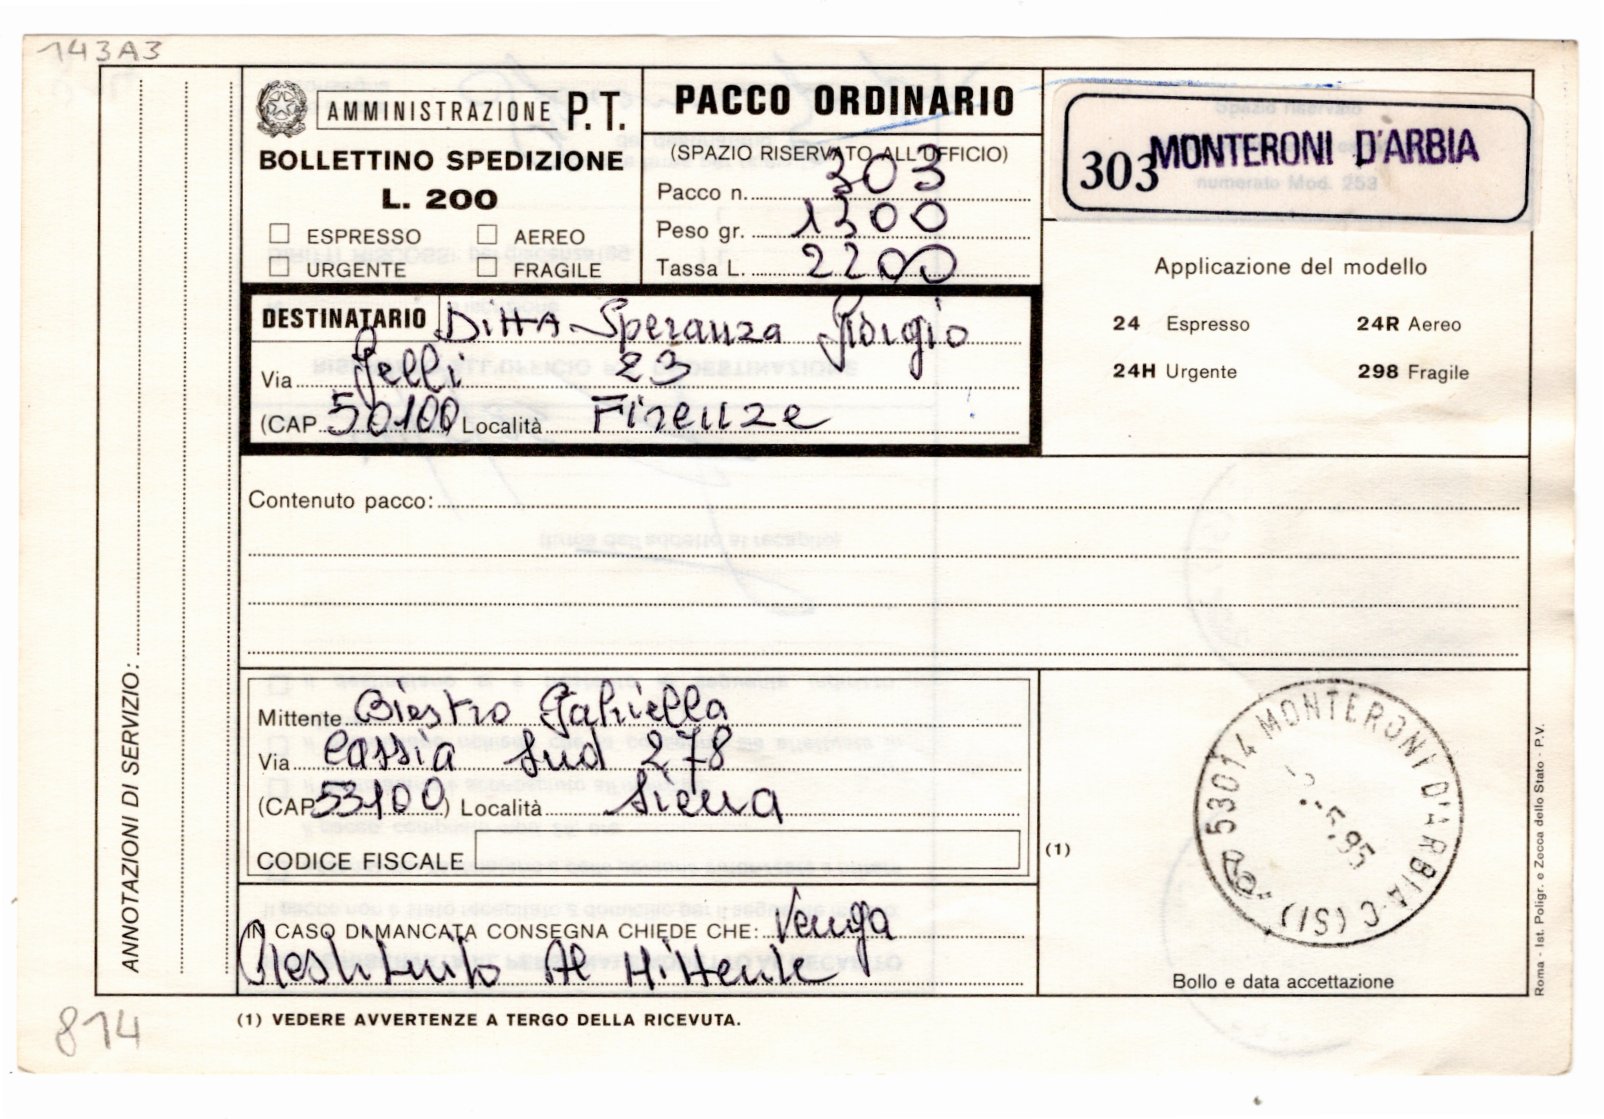 143A3
AMMINISTRAZIONE P.T.
BOLLETTINO SPEDIZIONE
L. 200
ESPRESSO AEREO
URGENTE FRAGILE
PACCO ORDINARIO
(SPAZIO RISERVATO ALL'UFFICIO)
Pacco n. 303
Peso gr. 1300
Tassa L. 2200
303 MONTERONI D'ARBIA
Applicazione del modello
24 Espresso 24R Aereo
24H Urgente 298 Fragile
DESTINATARIO Ditta Speranza Giorgio
Via Gelli 23
(CAP 50100) Località Firenze
Contenuto pacco:
ANNOTAZIONI DI SERVIZIO:
Mittente Biestro Gabriella
Via Cassia Sud 278
(CAP 53100) Località Siena
CODICE FISCALE
(1)
IN CASO DI MANCATA CONSEGNA CHIEDE CHE: Venga
Restituito Al Mittente
53014 MONTERONI D'ARBIA-C (SI)
5.95
Bollo e data accettazione
Roma - Ist. Poligr. e Zecca dello Stato - P.V.
814
(1) VEDERE AVVERTENZE A TERGO DELLA RICEVUTA.